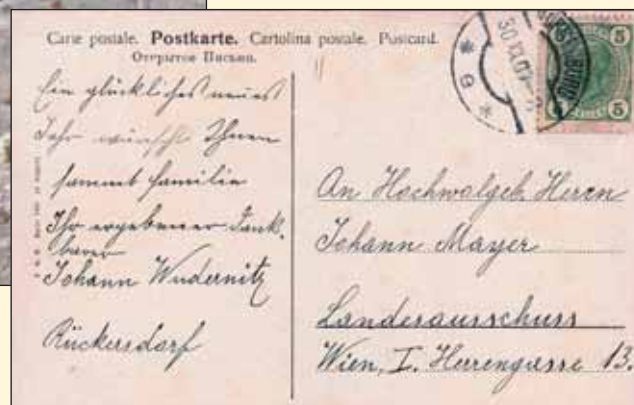 Carte postale. Postkarte. Cartolina postale. Postcard.
Открытое Письмо.
Ein glückliches neues
Jahr wünscht Ihnen
sammt Familie
Ihr ergebener dank-
barer
Johann Wudernitz
Rückersdorf
5 5
5 5
An Hochwolgeb. Herrn
Johann Mayer
Landesausschuss
Wien, I. Herrengasse 13.